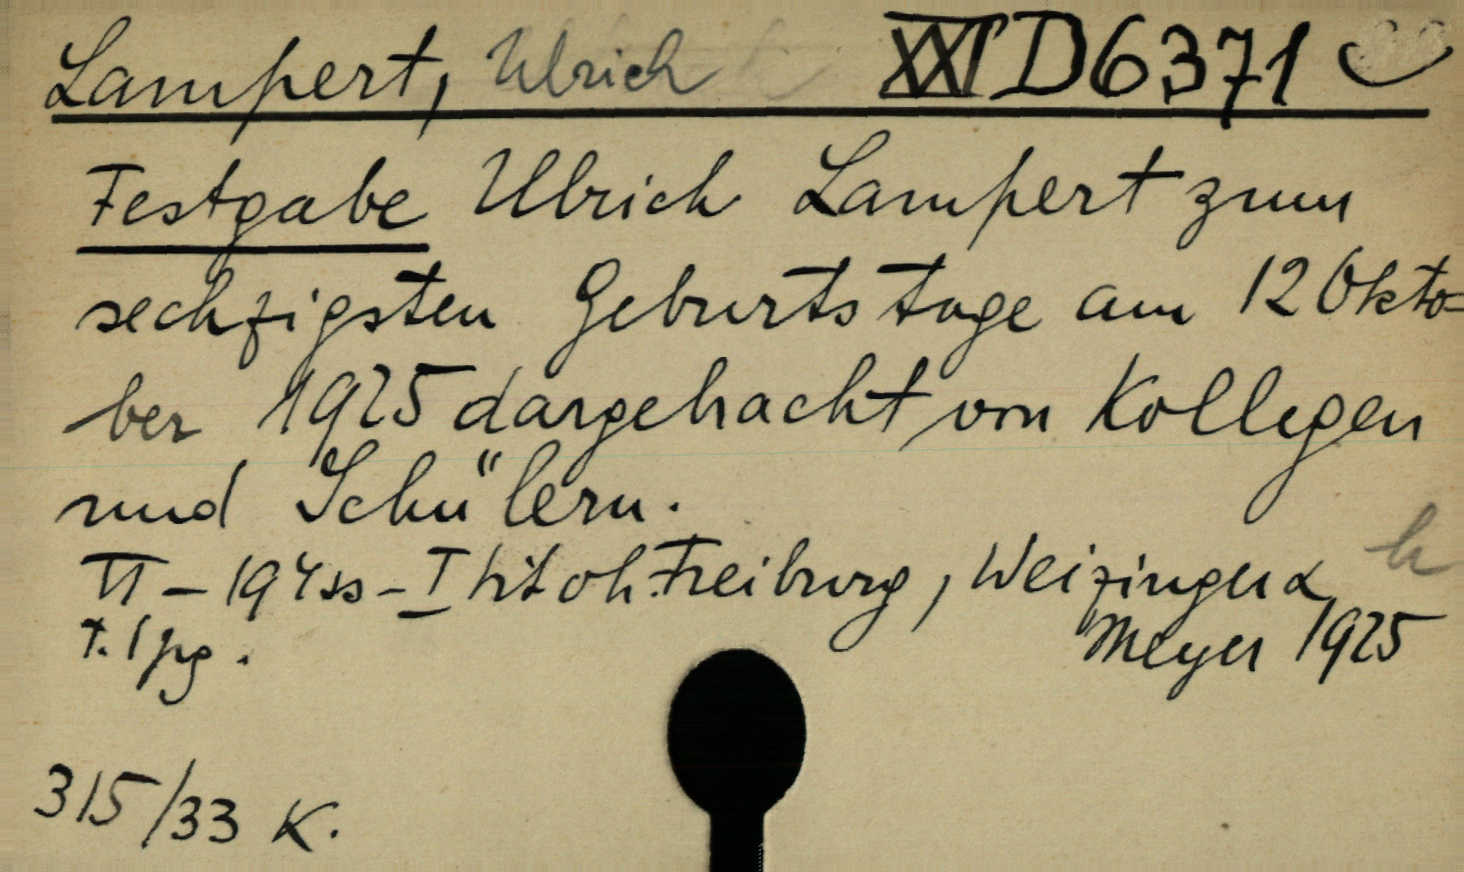 Lampert, Ulrich XXI D 6371
Festgabe Ulrich Lampert zum
sechzigsten Geburtstage am 12 Okto=
ber 1925 dargebracht von Kollegen
und Schülern.
VI - 194 ss - I tit oh. Freiburg, Weizinger &
t. 1 pg. Meyer 1925
315/33 K.